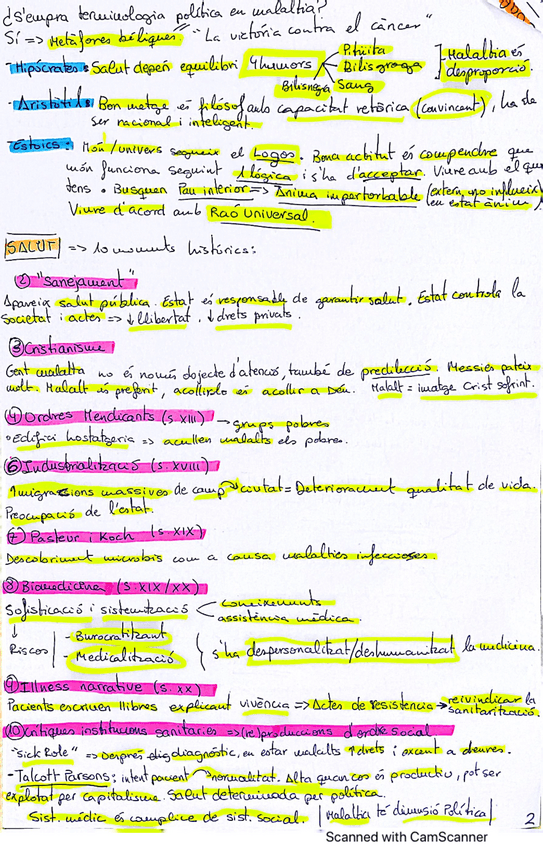 ¿S'empra terminologia política en malaltia?
Sí => Metàfores bèliques "La victòria contra el càncer"
- Hipòcrates: Salut depèn equilibri 4 humors Pituita Bilis groga Bilis negra Sang Malaltia és desproporció.
- Aristòtil: Bon metge és filòsof amb capacitat retòrica (convincent), ha de
ser racional i intel·ligent.
- Estoics: Món/univers segueix el Logos. Bona actitut és comprendre que
món funciona seguint 1 lògica i s'ha d'acceptar. Viure amb el que
tens. Busquen Pau interior => Ànima impertorbable (extern no influeix
Viure d'acord amb Raó Universal. en estat ànim)
SALUT => 10 moments històrics:
② "Sanejament"
Apareix salut pública. Estat és responsable de garantir salut. Estat controla la
societat i actes => ↓ llibertat, ↓ drets privats.
③ Cristianisme
Gent malalta no és només d'ojecte d'atenció, també de predilecció. Messies pateix
molt. Malalt és preferit, acollirlo és acollir a Déu. Malalt = imatge Crist sofrint.
④ Ordres Mendicants (s. XIII) → grups pobres
• Edifici hostatgeria => acullen malalts els pobres.
⑥ Industrialització (s. XVIII)
↑ migracions massives de camp → ciutat = Deteriorament qualitat de vida.
Preocupació de l'estat.
⑦ Pasteur i Koch (s. XIX)
Descobriment microbis com a causa malalties infeccioses.
⑧ Biomedicina (s. XIX/XX)
Sofisticació i sistematizació coneixements
assistència mèdica.
↓
Riscos - Burocratitzant
- Medicalització s'ha despersonalitzat/deshumanitzat la medicina.
⑨ Illness narrative (s. XX)
Pacients escriuen llibres explicant vivència => Actes de resistencia → reivindicar la
sanitarització.
⑩ Crítiques institucions sanitaries => (re)produccions d'ordre social
"Sick Role" => Després diagnòstic, en estar malalts ↑ drets i exempt a deures.
- Talcott Parsons: intent pacient → normalitat. Alta quan cos és productiu, pot ser
explotat per capitalisme. Salut determinada per política.
Sist. mèdic és complice de sist. social. | Malaltia té dimensió Política |
2
Scanned with CamScanner